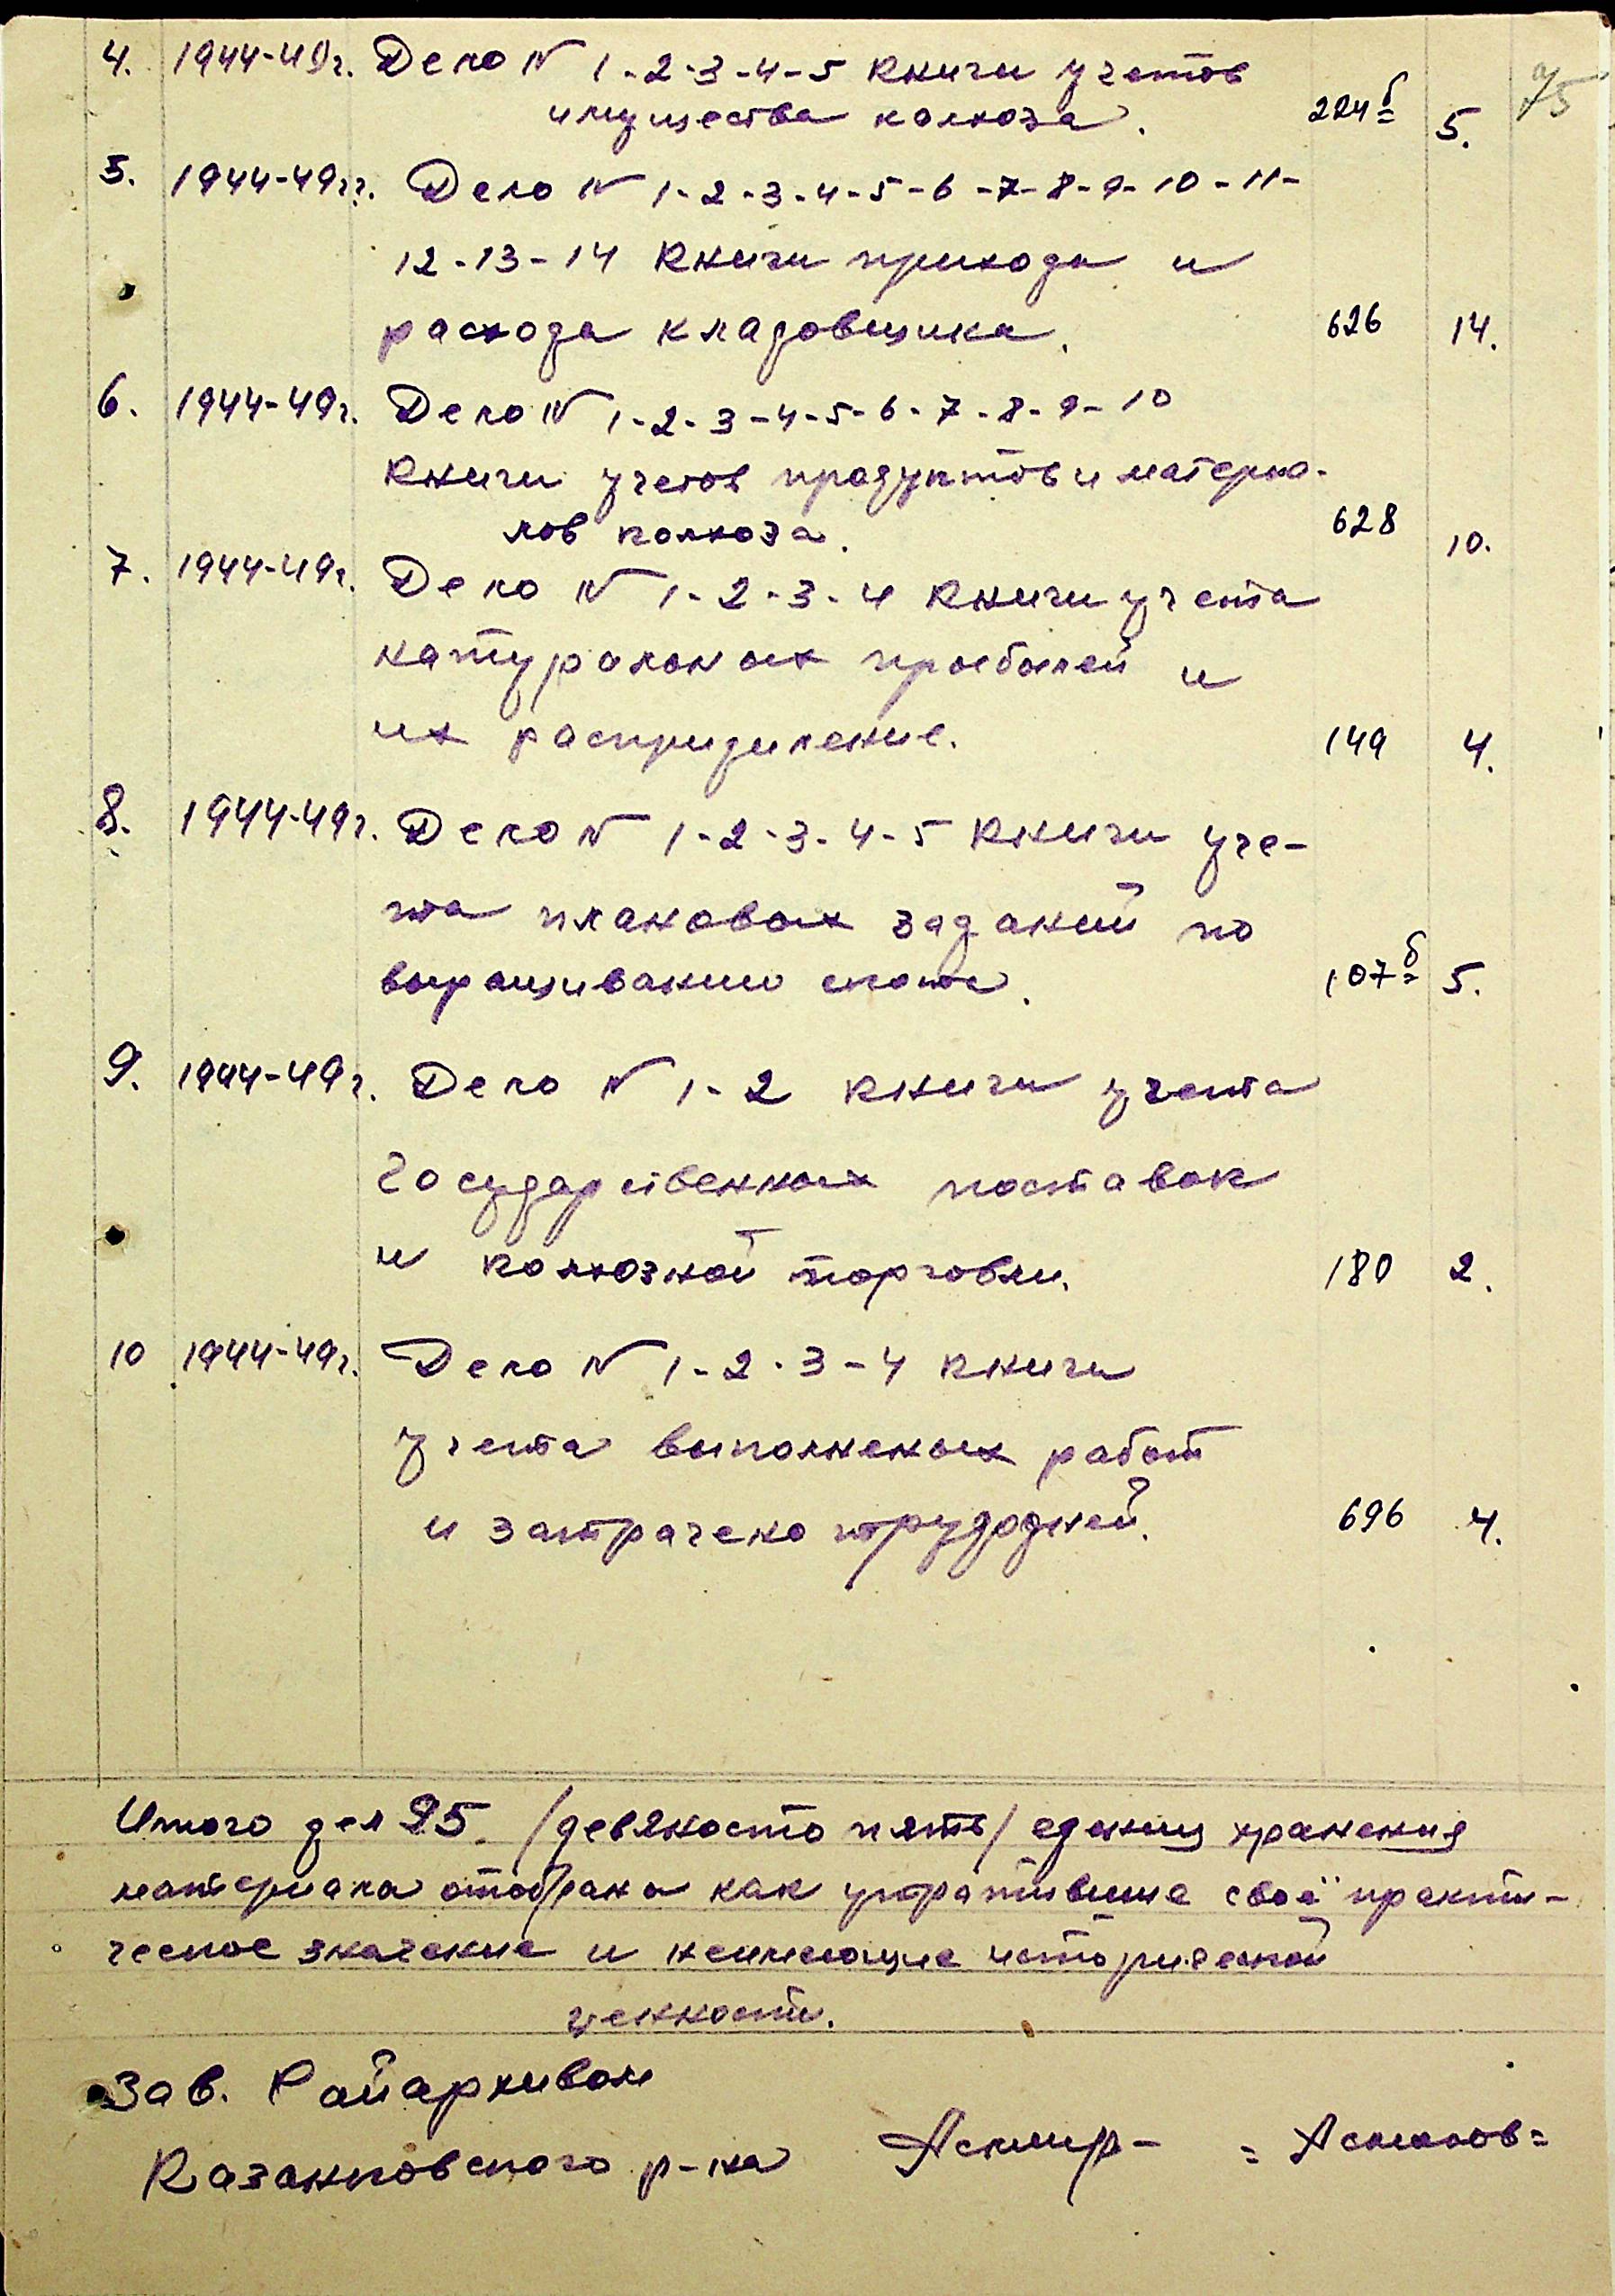 4. 1944-49г. Дело № 1-2-3-4-5 Книги учетов
имущества колхоза. 224б 5.
5. 1944-49гг. Дело № 1-2-3-4-5-6-7-8-9-10-11-
12-13-14 Книги прихода и
расхода кладовщика. 626 14.
6. 1944-49г. Дело № 1-2-3-4-5-6-7-8-9-10
Книги учетов продуктов и материа-
лов колхоза. 628 10.
7. 1944-49г. Дело № 1-2-3-4 Книги учета
натуральных прыбылей и
их распридиление. 149 4.
8. 1944-49г. Дело № 1-2-3-4-5 Книги уче-
та плановых заданий по
выращиванию скота. 107б 5.
9. 1944-49г. Дело № 1-2 книги учета
Государственных поставок
и колхозной торговли. 180 2.
10 1944-49г. Дело № 1-2-3-4 книги
учета выполненых работ
и затрачено трудодней. 696 4.
Итого дел 95. /девяносто пять/ едениц хранения
материала отобрана как утратившие своё практи-
ческое значение и неимеющие исторической
ценности.
Зав. Райархивом
Казанковского р-на = =